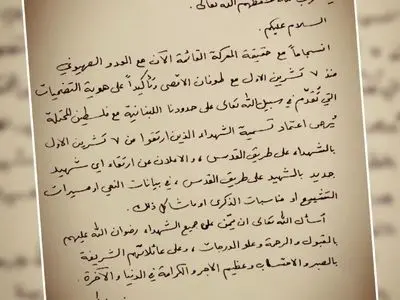 حفظهم الله تعالى.
السلام عليكم.
انسجاماً مع حقيقة المعركة القائمة الآن مع العدو الصهيوني
منذ ٧ تشرين الاول مع طوفان الاقصى وتأكيداً على هوية التضحيات
التي تُقدّم في سبيل الله تعالى على حدودنا اللبنانية مع فلسطين المحتلة
يُرجى اعتماد تسمية الشهداء الذين ارتقوا من ٧ تشرين الاول
بالشهداء على طريق القدس، والاعلان عن ارتقاء اي شهيد
جديد بالشهيد على طريق القدس، في بيانات النعي او مسيرات
التشييع او مناسبات الذكرى او ما شاكل ذلك.
أسأل الله تعالى ان يمنّ على جميع الشهداء رضوان الله عليهم
بالقبول والرحمة وعلو الدرجات، وعلى عائلاتهم الشريفة
بالصبر والاحتساب وعظيم الاجر والكرامة في الدنيا والآخرة.